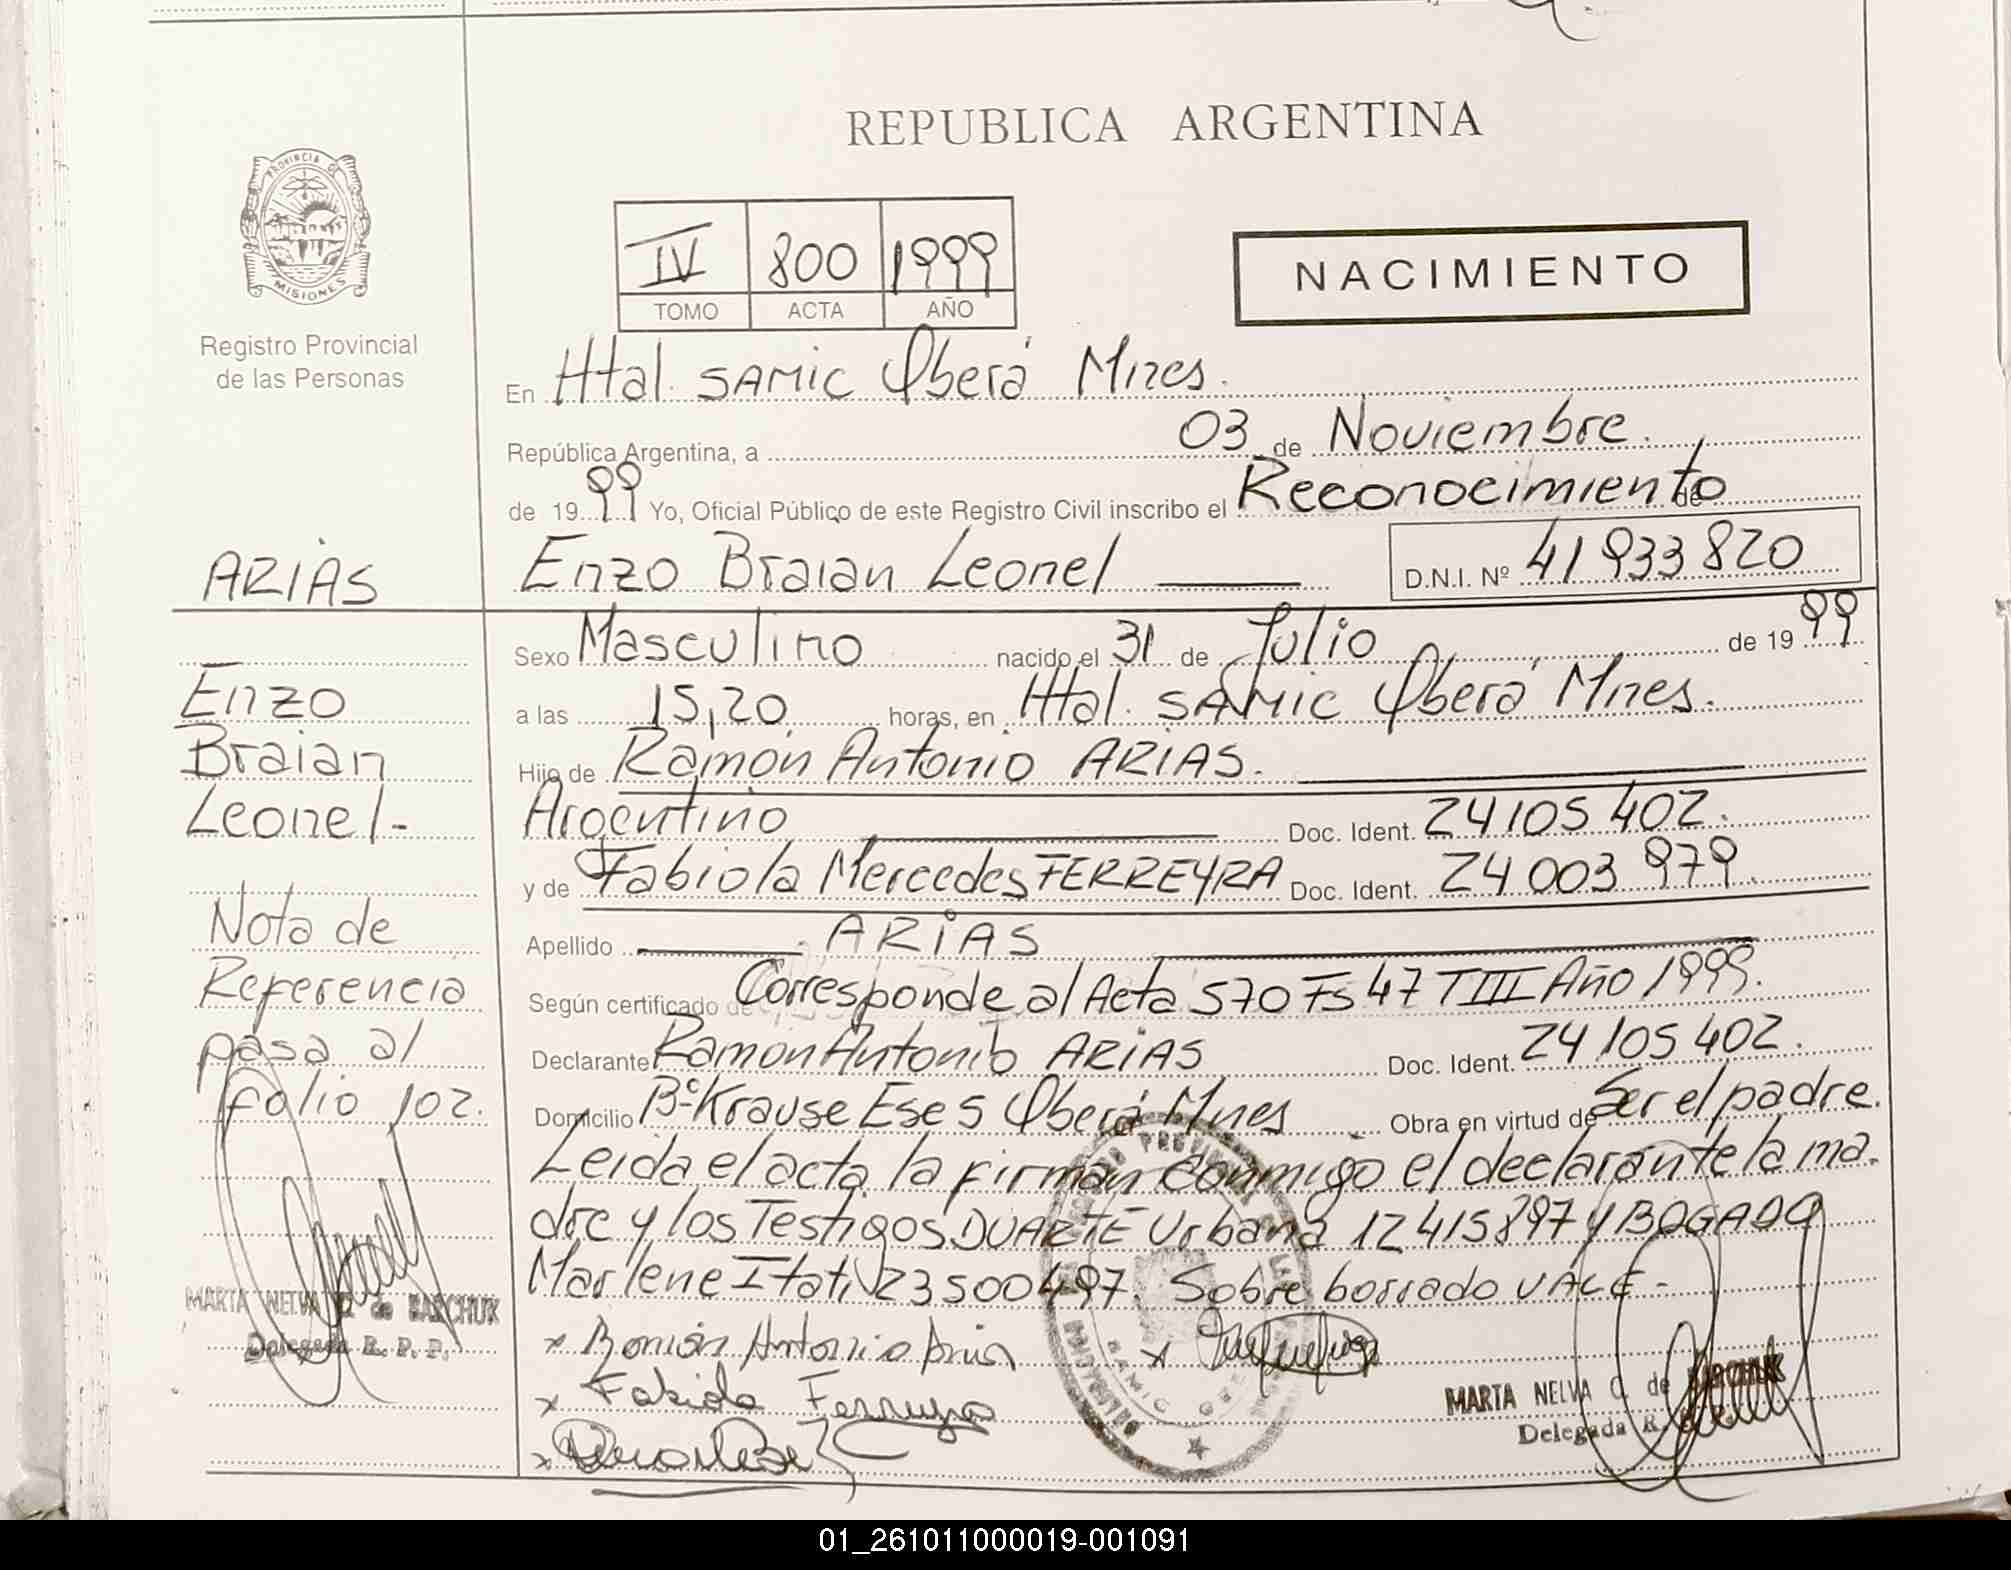 REPUBLICA ARGENTINA
PROVINCIA DE
MISIONES
Registro Provincial
de las Personas
IV 800 1999
TOMO ACTA AÑO
NACIMIENTO
En Htal. SAMIC Oberá Mnes.
República Argentina, a 03 de Noviembre.
de 1999 Yo, Oficial Público de este Registro Civil inscribo el Reconocimiento de
ARIAS
Enzo Braian Leonel D.N.I. Nº 41933820
Sexo Masculino nacido el 31 de Julio de 1999
a las 15,20 horas, en Htal. SAMIC Oberá Mnes.
Hijo de Ramón Antonio ARIAS.
Argentino Doc. Ident. 24105402.
y de Fabiola Mercedes FERREYRA Doc. Ident. 24003979.
Apellido ARIAS
Según certificado de Corresponde al Acta 570 Fs 47 TIII Año 1999.
Declarante Ramón Antonio ARIAS Doc. Ident. 24105402.
Domicilio Bº Krause Ese 5 Oberá Mnes Obra en virtud de Ser el padre.
Leida el acta, la firman conmigo el declarante la ma.
dre y los Testigos DUARTE Urbana 12415897 y BOGADO
Marlene Itatí 23500497. Sobre borrado VALE-
Enzo
Braian
Leonel-
Nota de
Referencia
pasa al
folio 102.
MARTA NELVA C. de BARCHUK
Delegada R. P. P.
x Ramón Antonio Arias x
x Fabiola Ferreyra
x
SAMIC OBERA
MARTA NELVA C. de BARCHUK
Delegada R.
01_261011000019-001091